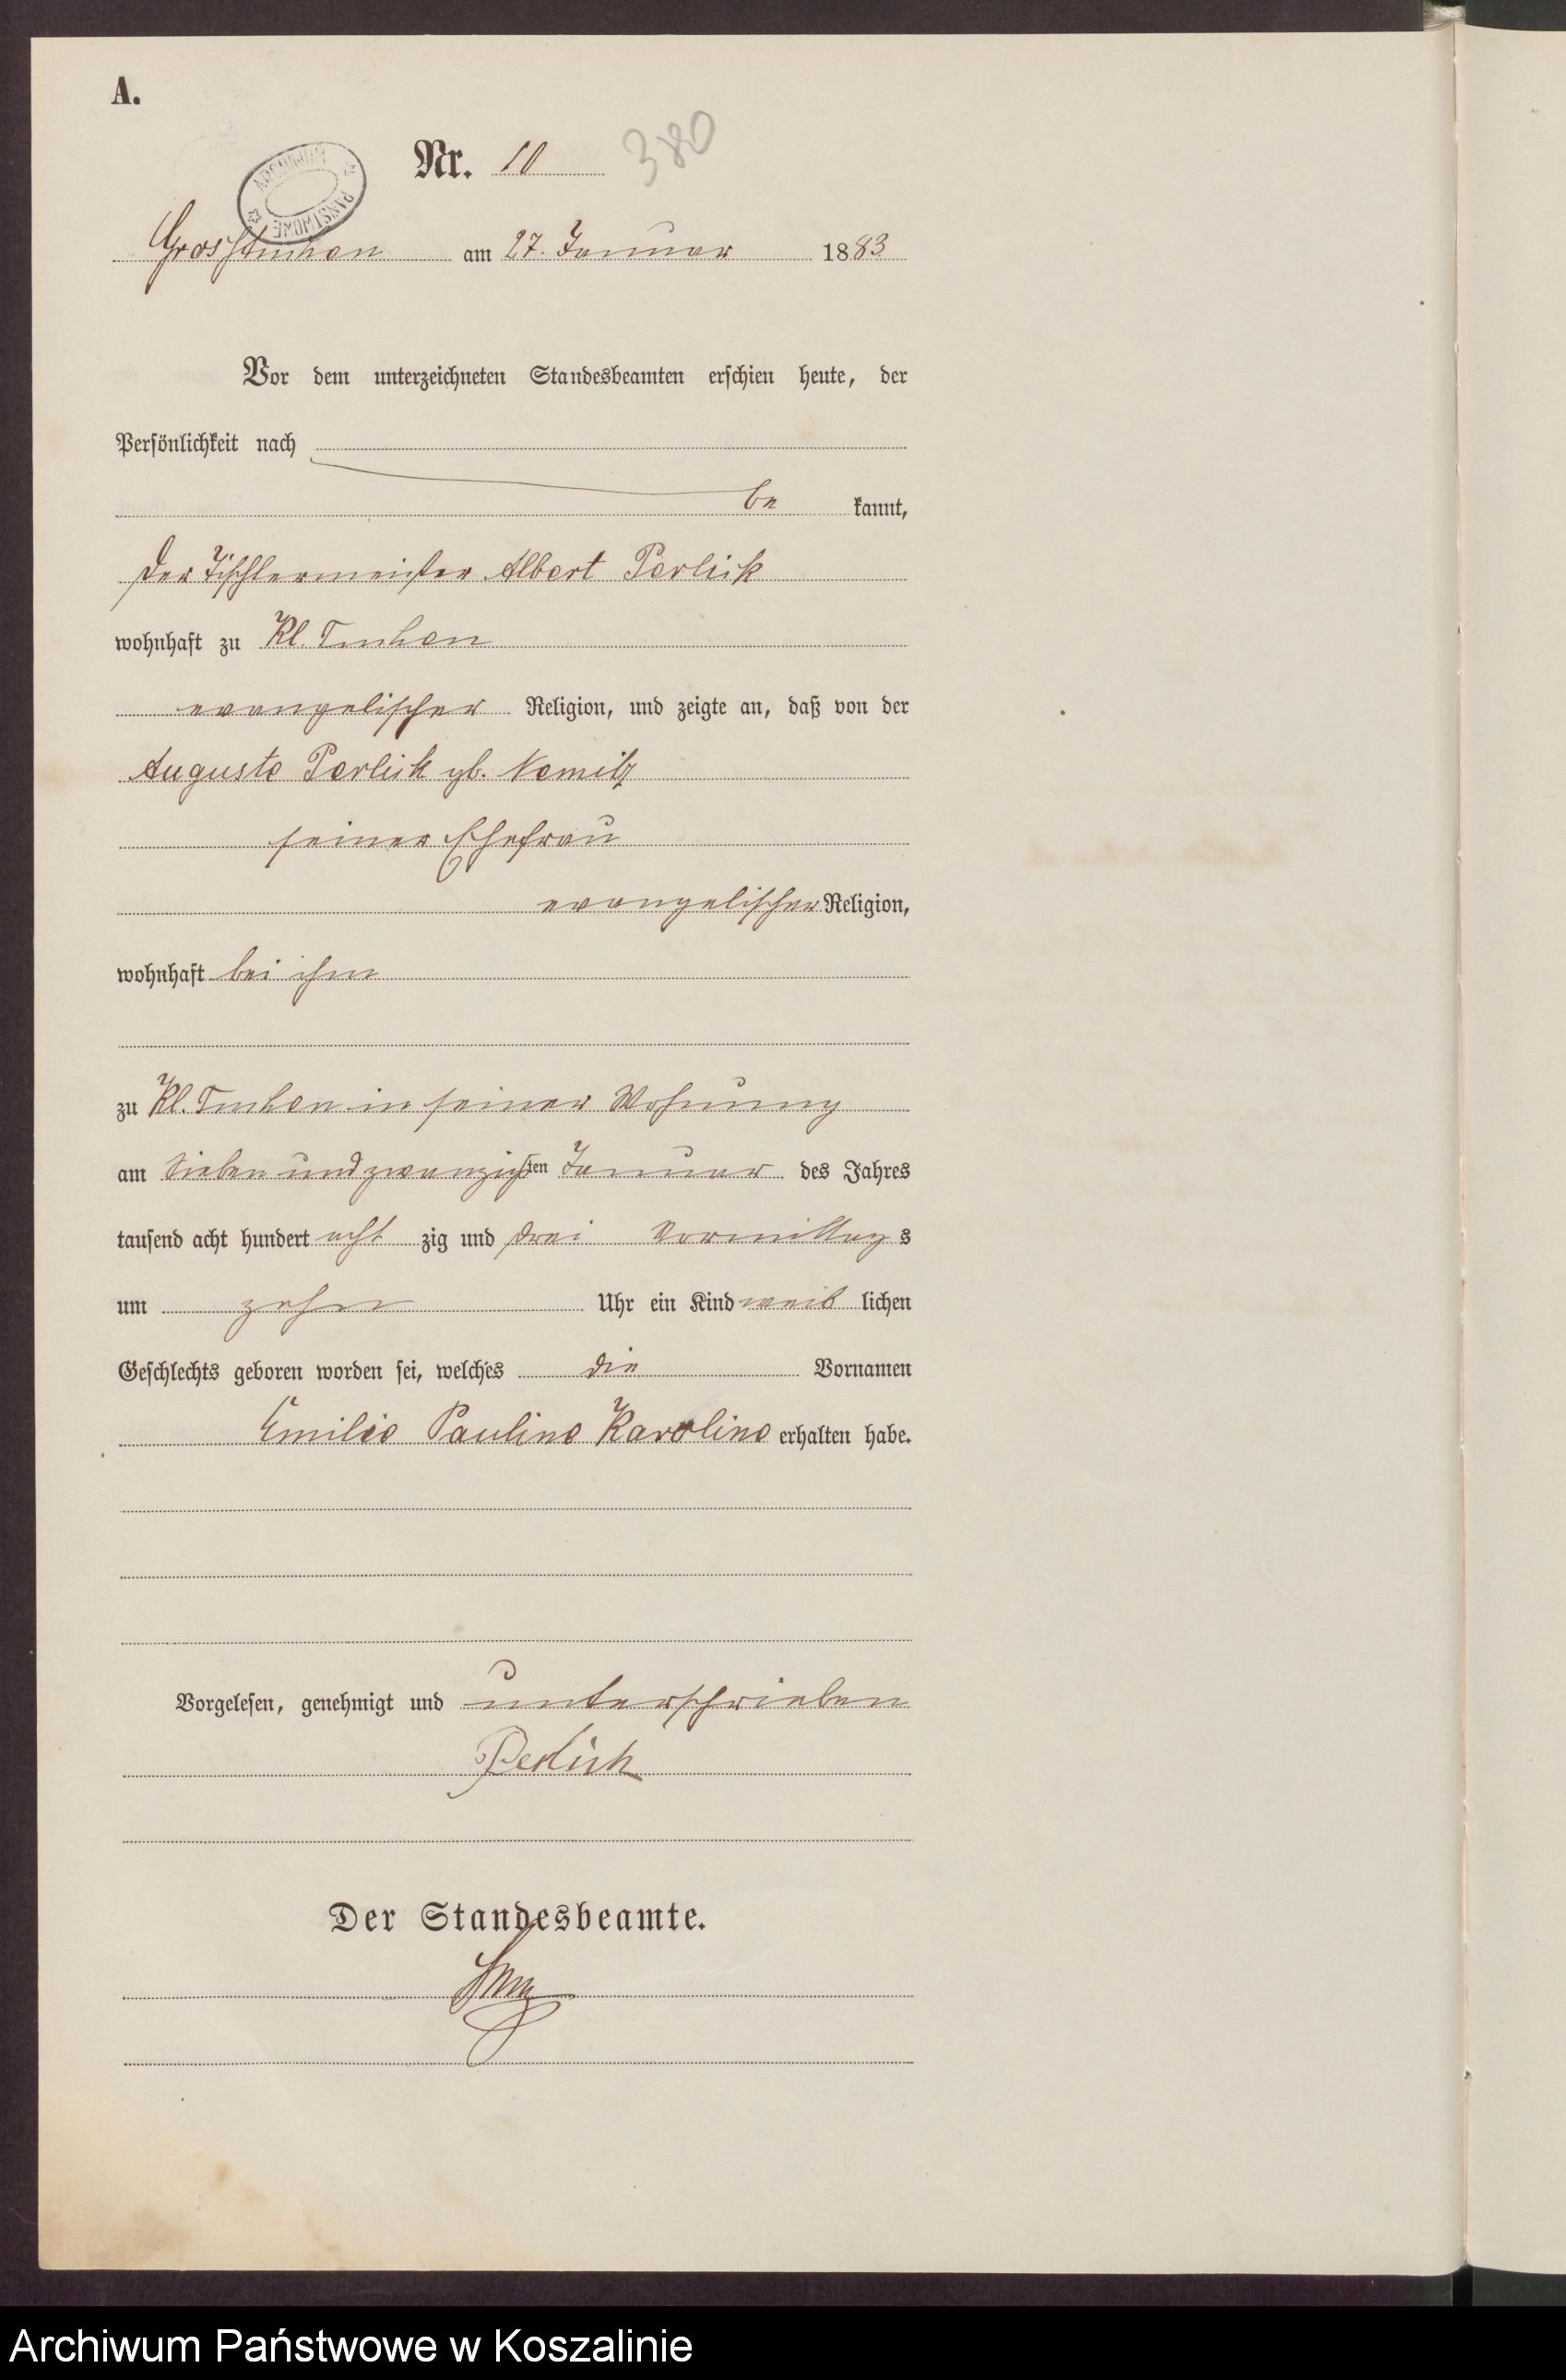 A.
Nr. 10
380
ARCHIWUM PAŃSTWOWE
Gross Tuchen am 27. Januar 1883
Vor dem unterzeichneten Standesbeamten erschien heute, der
Persönlichkeit nach
be kannt,
der Tischlermeister Albert Perlick
wohnhaft zu Kl. Tuchen
evangelischer Religion, und zeigte an, daß von der
Auguste Perlick gb. Nemitz
seiner Ehefrau
evangelischer Religion,
wohnhaft bei ihm
zu Kl. Tuchen in seiner Wohnung
am sieben und zwanzigsten Januar des Jahres
tausend acht hundert acht zig und drei Vormittags
um zehn Uhr ein Kind weib lichen
Geschlechts geboren worden sei, welches die Vornamen
Emilie Pauline Karoline erhalten habe.
Vorgelesen, genehmigt und unterschrieben
Perlick
Der Standesbeamte.
Archiwum Państwowe w Koszalinie